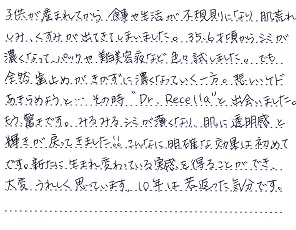 子供が産まれてから、食事や生活が不規則になり、肌荒れ
しみ、くすみが出てきてしまいました。35、6才頃からシミが
濃くなって、パックや美容液など色々試しました。でも
全然歯止めがきかずに濃くなっていく一方。悲しいけど
あきらめようと…その時 "Dr. Recella"と出会いました。
もう驚きです。みるみるシミが薄くなり、肌に透明感と
輝きが戻ってきました!!こんなに明確な効果は初めて
です。新たに生まれ変わっている実感を得ることができ、
大変うれしく思っています。10年は若返った気分です。